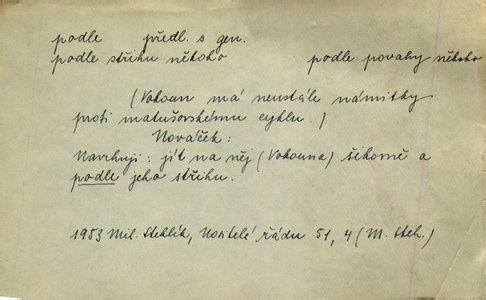 podle předl. s gen.
podle střihu někoho podle povahy někoho
(Vokoun má neustále námitky
proti matušovskému cyklu.)
Nováček:
Navrhuji: jít na něj (Vokouna) šikovně a
podle jeho střihu.
1953 Mil. Stehlík, Nositelé řádu 51, 4 (M. Steh.)